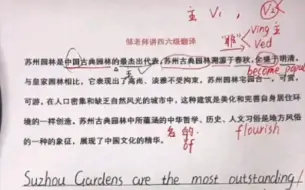 主 V₁ , V₂
"非" ving 主
Ved
邹老师讲四六级翻译
苏州园林是中国古典园林的最杰出代表,苏州园林溯源于春秋,全盛于明清,
become popul
与皇家园林相比,它表现出了高尚、淡雅不受拘束。苏州园林宅园合一,可赏,
可游,在人口密集和缺乏自然风光的城市中,这种建筑是美化和完善自身居住环
境的一样创造。苏州园林中所蕴涵的中华哲学、历史、人文习俗是地方风俗
的一种的象征,展现了中国文化的精华。
名的
of
flourish
Suzhou Gardens are the most outstanding